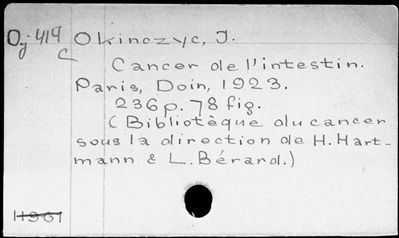 Oj 414 Okinczyc, J.
C
Cancer de l'intestin.
Paris, Doin, 1923.
236p. 78 fig.
(Bibliotèque du cancer
sous la direction de H. Hart-
mann & L. Bérard.)
11961